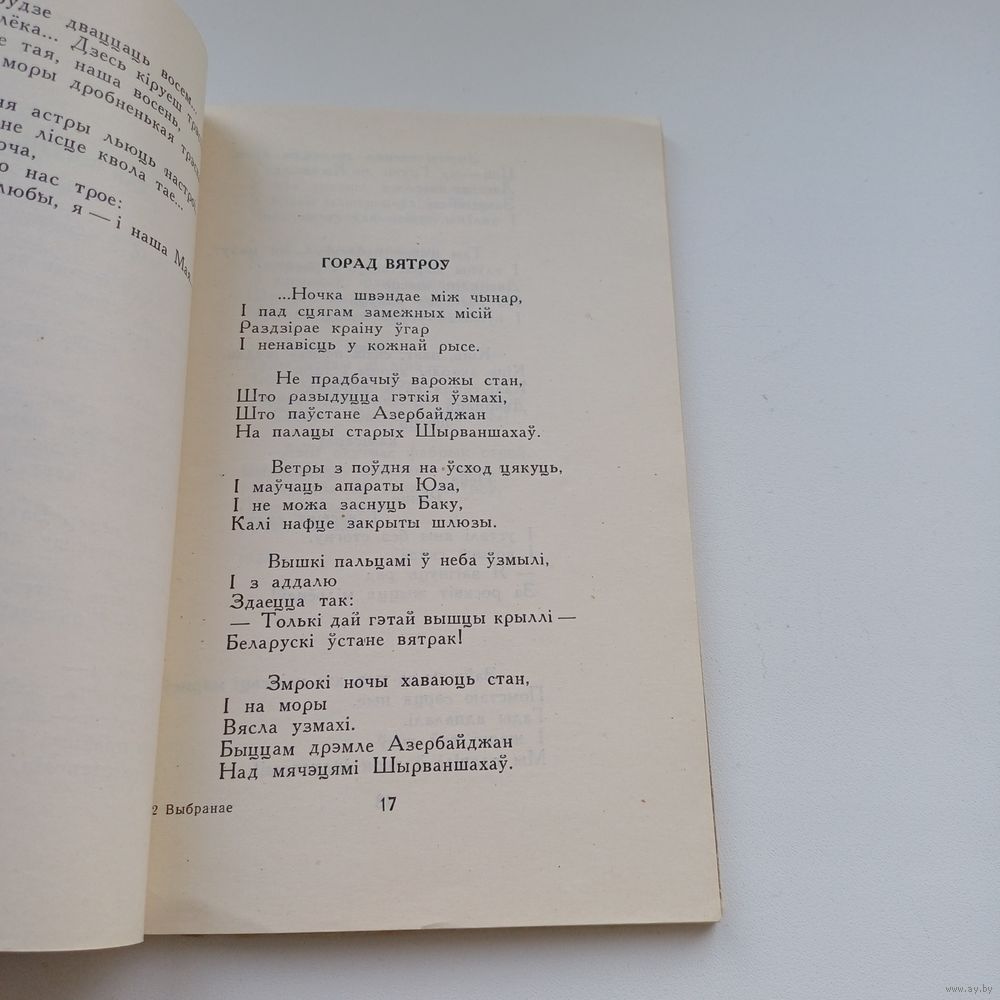 дзе дваццаць восем...
лёка... Дзесь кіруеш
е тая, наша восень,
моры дробненькая
ня астры льюць
не лісце квола тае...
оча,
о нас трое:
любы, я — і наша
ГОРАД ВЯТРОУ
...Ночка швэндае між чынар,
І пад сцягам замежных місій
Раздзірае краіну ўгар
І ненавісць у кожнай рысе.
Не прадбачыў варожы стан,
Што разыдуцца гэткія ўзмахі,
Што паўстане Азербайджан
На палацы старых Шырваншахаў.
Ветры з поўдня на ўсход цякуць,
І маўчаць апараты Юза,
І не можа заснуць Баку,
Калі нафце закрыты шлюзы.
Вышкі пальцамі ў неба ўзмылі,
І з аддалю
Здаецца так:
— Толькі дай гэтай вышцы крыллі —
Беларускі ўстане вятрак!
Змрокі ночы хаваюць стан,
І на моры
Вясла узмахі.
Быццам дрэмле Азербайджан
Над мячэцямі Шырваншахаў.
2 Выбранае
17
www.ay.by